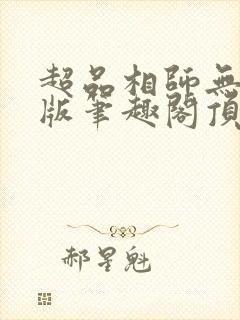 超品相師無
版筆趣閣頂
郝星魁